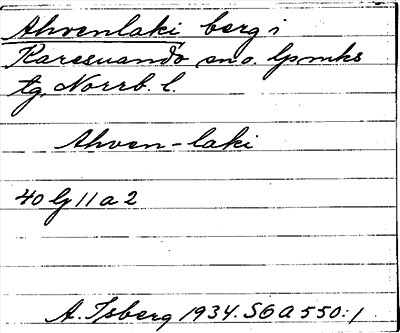 Ahvenlaki berg i
Karesuando sn o. lpmks
tg, Norrb. l.
Ahven-laki
40 lj 11 a 2
A. Isberg 1934. SGA 550:1